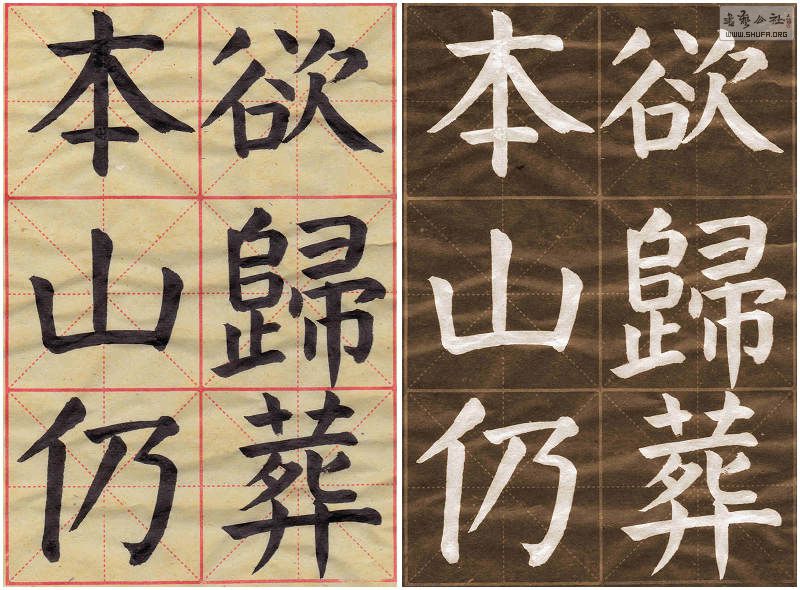 欲歸葬
本山仍
欲歸葬
本山仍
书藝公社
WWW.SHUFA.ORG